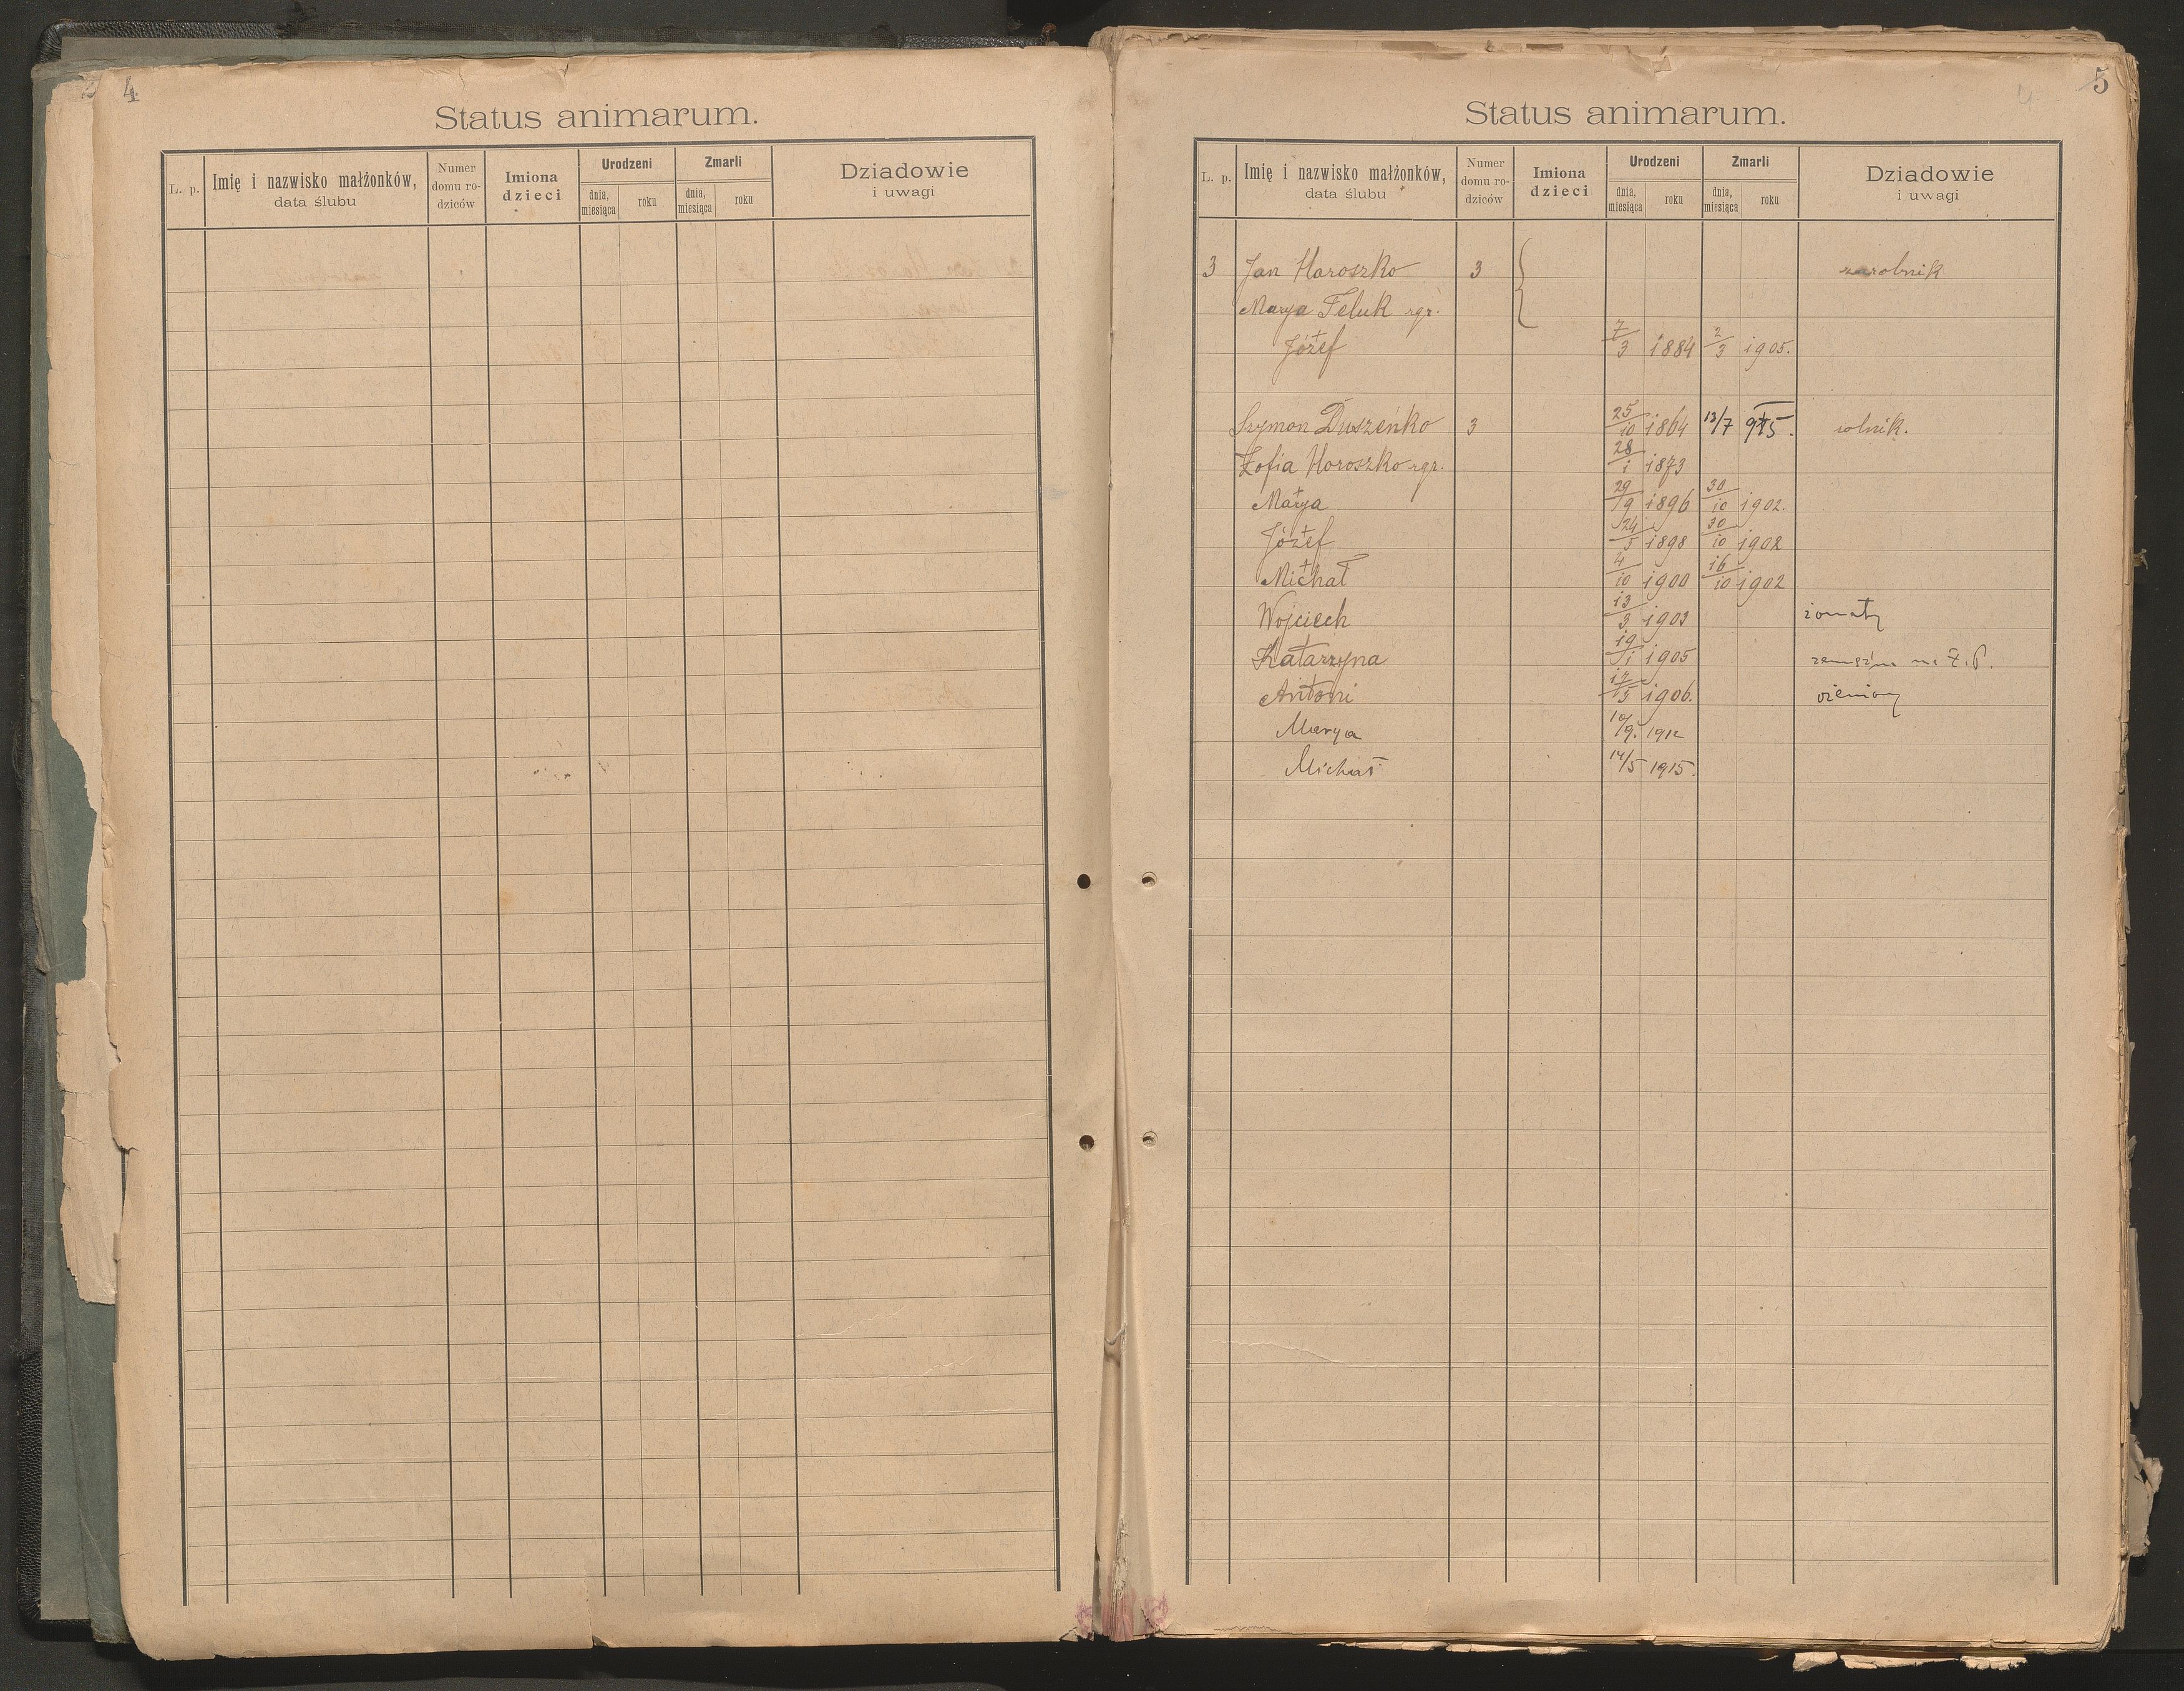 4
Status animarum.
L. p. Imię i nazwisko małżonków, data ślubu Numer domu rodziców Imiona dzieci Urodzeni dnia, miesiąca roku Zmarli dnia, miesiąca roku Dziadowie i uwagi
5
Status animarum.
L. p. Imię i nazwisko małżonków, data ślubu Numer domu ro-dziców Imiona dzieci Urodzeni dnia, miesiąca roku Zmarli dnia, miesiąca roku Dziadowie i uwagi
3 Jan Haroszko 3 zarobnik
Marya Feluk rgr.
Józef 7/3 1884 2/3 1905.
Szymon Duszeńko 3 25/10 1864 13/7 915. rolnik.
Zofia Horoszko rgr. 28/1 1873
Marya 29/9 1896 30/10 1902.
Józef 24/5 1898 30/10 1902
Michał 4/10 1900 16/10 1902
Wojciech 13/3 1903 żonaty
Katarzyna 19/1 1905
Antoni 17/5 1906. ożeniony
Marya 10/9. 1912
Michał 14/5 1915.